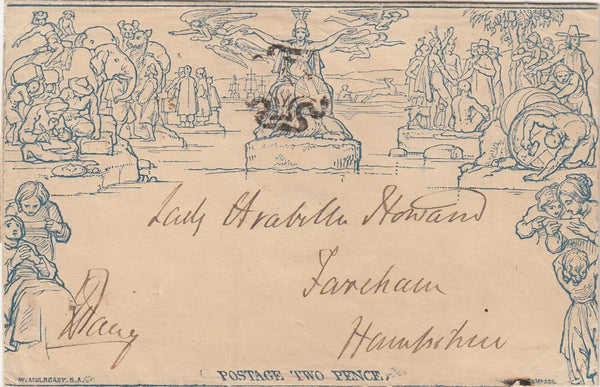 Lady Arabella Howard
Fareham
Hampshire
W. MULREADY, R.A.
POSTAGE TWO PENCE.